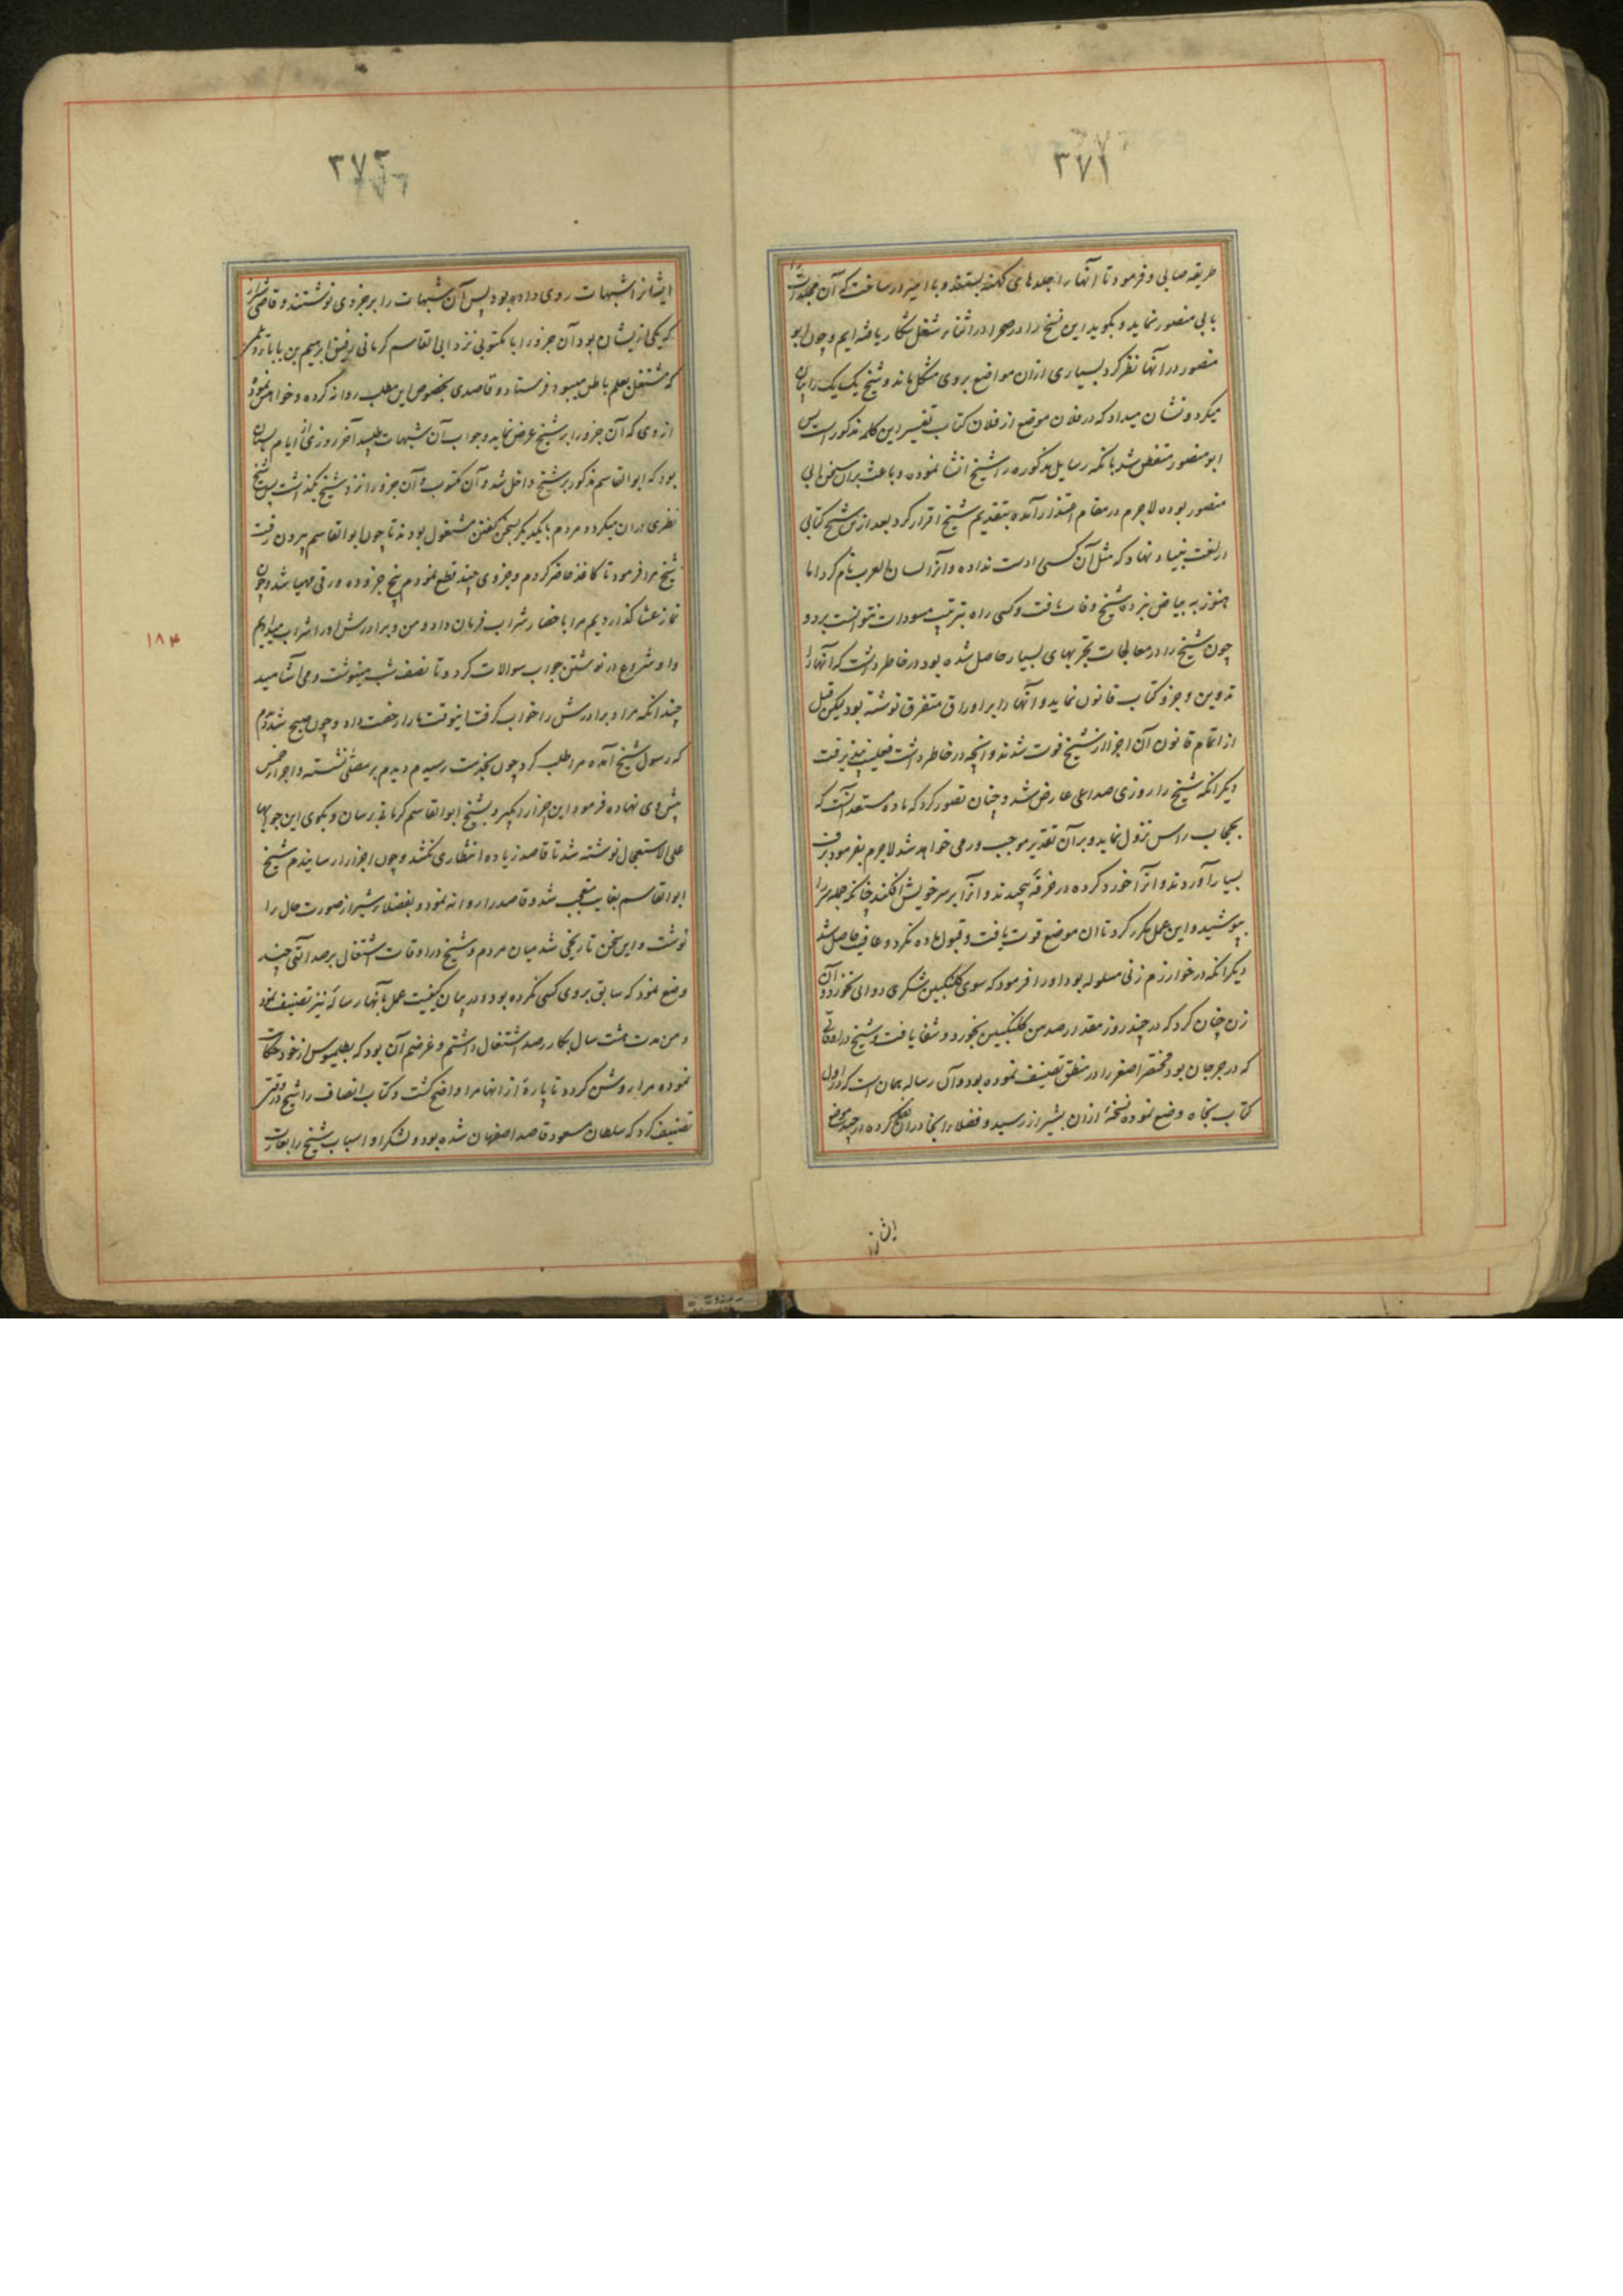 ۳۷۱
طریقه صابی و فرمود تا آنها را جلدهای کهنه بستند و با امیر در ساخت که آن مجلدات را
بابی منصور نماید و بگوید این نسخ را در صحرا در اثناء شغل شکار یافته ایم و چون ابو
منصور در آنها نظر کرد بسیاری ازان مواضع بروی مشکل ماند و شیخ یک یک را بیان
میکرد و نشان میداد که در فلان موضع از فلان کتاب تفسیر این کلمه مذکور است پس
ابو منصور متفطن شد بانکه رسایل مذکوره را شیخ انشا نموده و باعث بران سخن ابی
منصور بوده لاجرم در مقام اعتذار آمده بتقدیم شیخ اقرار کرد بعد ازین شیخ کتابی
در لغت بنیاد نهاد که مثل آن کسی ادست نداده و آنرا لسان العرب نام کرد اما
هنوز به بیاض نبرده شیخ وفات یافت و کسی راه بترتیب مسودات نتوانست برد و
چون شیخ را در معالجات تجربهای بسیار حاصل شده بود در خاطر داشت که آنها را
تدوین و جزو کتاب قانون نماید و آنها را بر اوراق متفرق نوشته بود لیکن قبل
از اتمام قانون آن اجزا از شیخ فوت شدند و انچه در خاطر داشت فعلیت نپذیرفت
دیگر انکه شیخ را روزی صداعی عارض شد و چنان تصور کرد که ماده مستعد آنست که
بحجاب راس نزول نماید و بر آن تقدیر موجب ورمی خواهد شد لاجرم بفرمود برف
بسیار آوردند و آنرا خورد کرده در خرقه پیچیدند و آنرا بر سر خویش افکند چنانکه جمله سر را
بپوشید و این عمل مکرر کرد تا ان موضع قوت یافت و قبول ماده نکرد و عافیت حاصل شد
دیگر انکه در خوارزم زنی مسلوله بود او را فرمود که سوی گلنگبین شکری دوائی نخورد و آن
زن چنان کرد که در چند روز مقدار صد من گلنگبین بخورد و شفا یافت و شیخ در اوقاتی
که در جرجان بود مختصر اصغر را در منطق تصنیف نموده بود و آن رساله همان است که در اول
کتاب نجاه وضع نموده نسخهٔ ازان بشیراز رسید و فضلاء انجا دران نظر کرده در چند موضع
ایشان
۳۷۲
ایشانرا شبهات روی داده بود پس آن شبهات را بر جزوی نوشتند و قاضی شیراز
که یکی از ایشان بود آن جزو را با مکتوبی نزد ابی القاسم کرمانی رفیق ابرهیم بن بابا دیلمی
که مشتغل بعلم باطن میبود فرستاد و قاصدی بخصوص این مطلب روانه کرده و خواهش نمود
از وی که آن جزو را بر شیخ عرض نماید و جواب آن شبهات طلبید آخر روزی از ایام تابستان
بود که ابوالقاسم مذکور بر شیخ داخل شد و آن مکتوب و آن جزو را نزد شیخ بگذاشت پس شیخ
نظری دران میکرد و مردم بایکدیگر بسخن گفتن مشغول بودند تا چون ابوالقاسم بیرون رفت
شیخ مرا فرمود تا کاغذ حاضر کردم و جزوی چند قطع نمودم پنج جزو ده ورقی مهیا شد و چون
نماز عشا گذاردیم مرا باحضار شراب فرمان داد و من و برادرش او را شراب میدادیم
و او شروع در نوشتن جواب سوالات کرد و تا نصف شب مینوشت و می آشامید
چندانکه مرا و برادرش را خواب گرفت اینوقت ما را رخصت داد و چون صبح شد دیدم
که رسول شیخ آمده مرا طلب کرد چون بخدمت رسیدم دیدم بر مصلی نشسته و اجزاء خمس
پیش وی نهاده فرمود این اجزا را بگیر و بشیخ ابوالقاسم کرمانی رسان و بگوی این جوابها
علی الاستعجال نوشته شد تا قاصد زیاده انتظاری نکشد و چون اجزا را رسانیدم شیخ
ابوالقاسم بغایت متعجب شد و قاصد را روانه نمود و بفضلاء شیراز صورت حال را
نوشت و این سخن تاریخی شد میان مردم و شیخ در اوقات اشتغال برصد آلتی چند
وضع نمود که سابق بروی کسی نکرده بود و در بیان کیفیت عمل بآنها رسالهٔ نیز تصنیف نمود
و من مدت هشت سال بکار رصد اشتغال داشتم و غرضم آن بود که بطلیموس از خود حکایات
نموده مرا روشن گردد تا پارهٔ از انها مرا واضح گشت و کتاب انصاف را شیخ در وقتی
تصنیف کرد که سلطان مسعود قاصد اصفهان شده بود و لشکر او اسباب شیخ را بغارت
۱۸۴